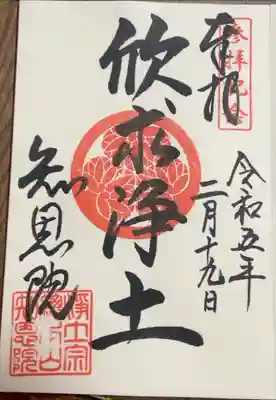 奉拝
参拝記念
令和五年
二月十九日
欣求浄土
知恩院
浄土宗
知恩院